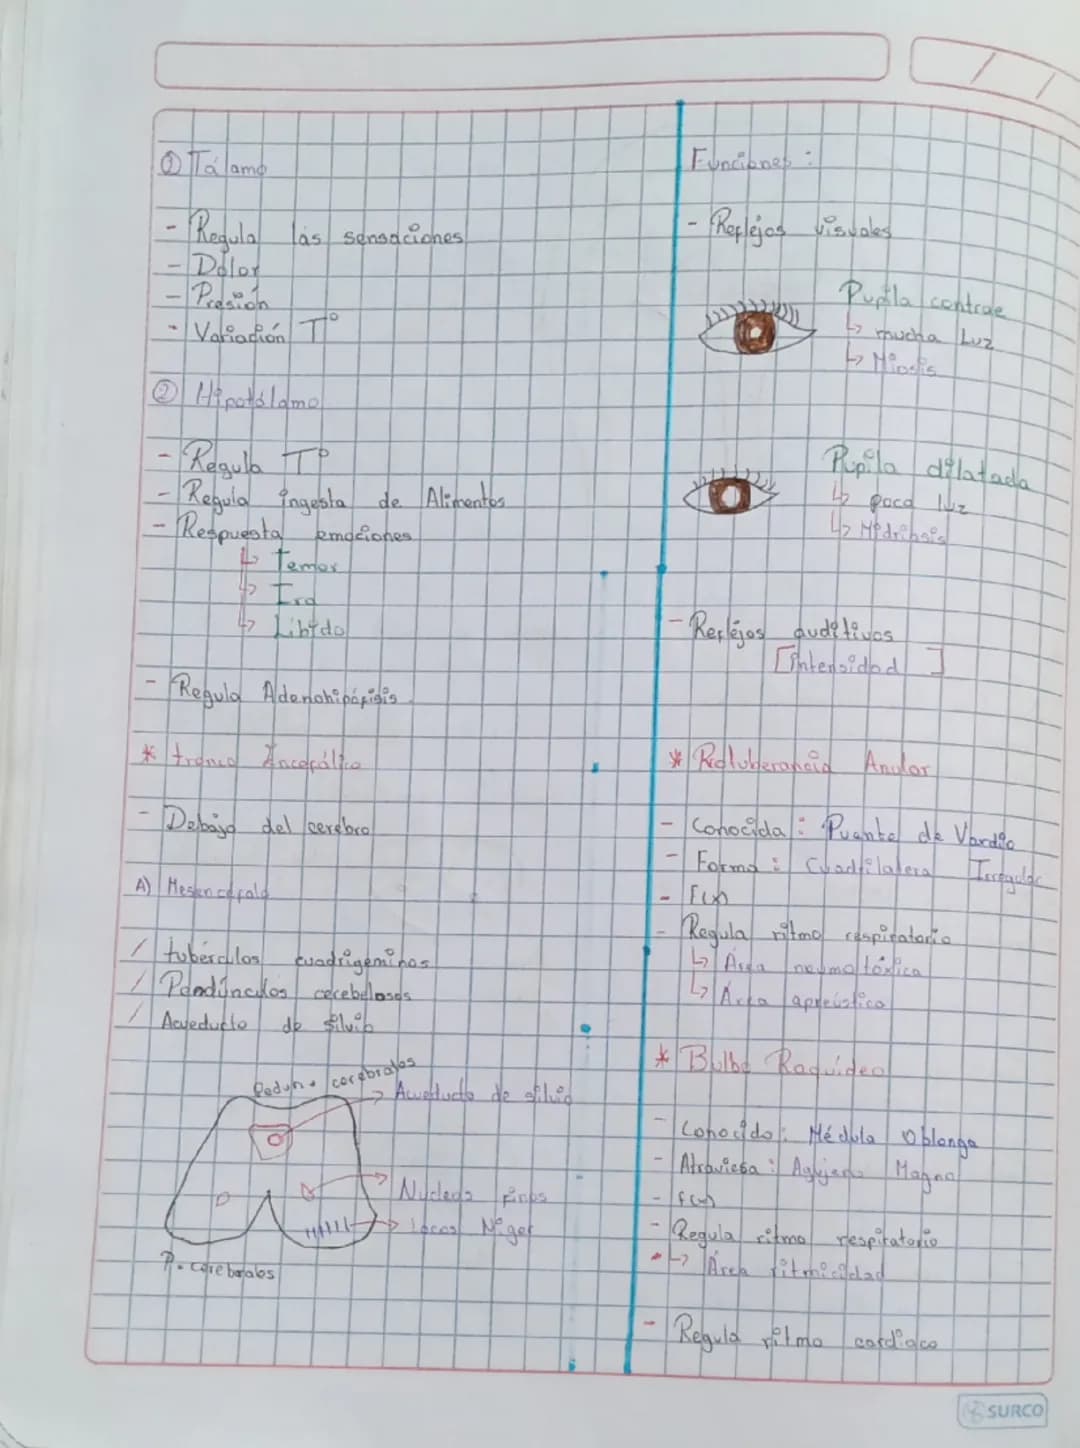 ① Tálamo
- Regula las sensaciones
- Dolor
- Presión
- Variación T°
② Hipotálamo
- Regula T°
- Regula ingesta de Alimentos
- Respuesta emociones
↳ Temor
↳ Ira
↳ Libido
- Regula Adenohipófisis
* tronco Encefálico
- Debajo del cerebro
A) Mesencefalo
/ tubérculos cuadrigeminos
/ Pendúnculos cerebelosos
/ Acueducto de silvio
Pedun. cerebrales
→ Acueducto de silvio
→ Nucleos
→ Locos Niger
P. cerebrales
Funciones :
- Reflejos visuales
Pupila contrae
↳ mucha Luz
↳ Miosis
Pupila dilatada
↳ poca luz
↳ Midriasis
- Reflejos auditivos
[intensidad]
* Protuberancia Anular
- Conocida : Puente de Vardio
- Forma : Cuadrilatera Irregular
- F(x)
- Regula ritmo respiratorio
↳ Área neumotóxica
↳ Área apneústica
* Bulbo Raquídeo
- Conocido : Médula Oblonga
- Atraviesa : Agujero Magno
- f(x)
- Regula ritmo respiratorio
↳ Área ritmicidad
- Regula ritmo cardiaco
SURCO